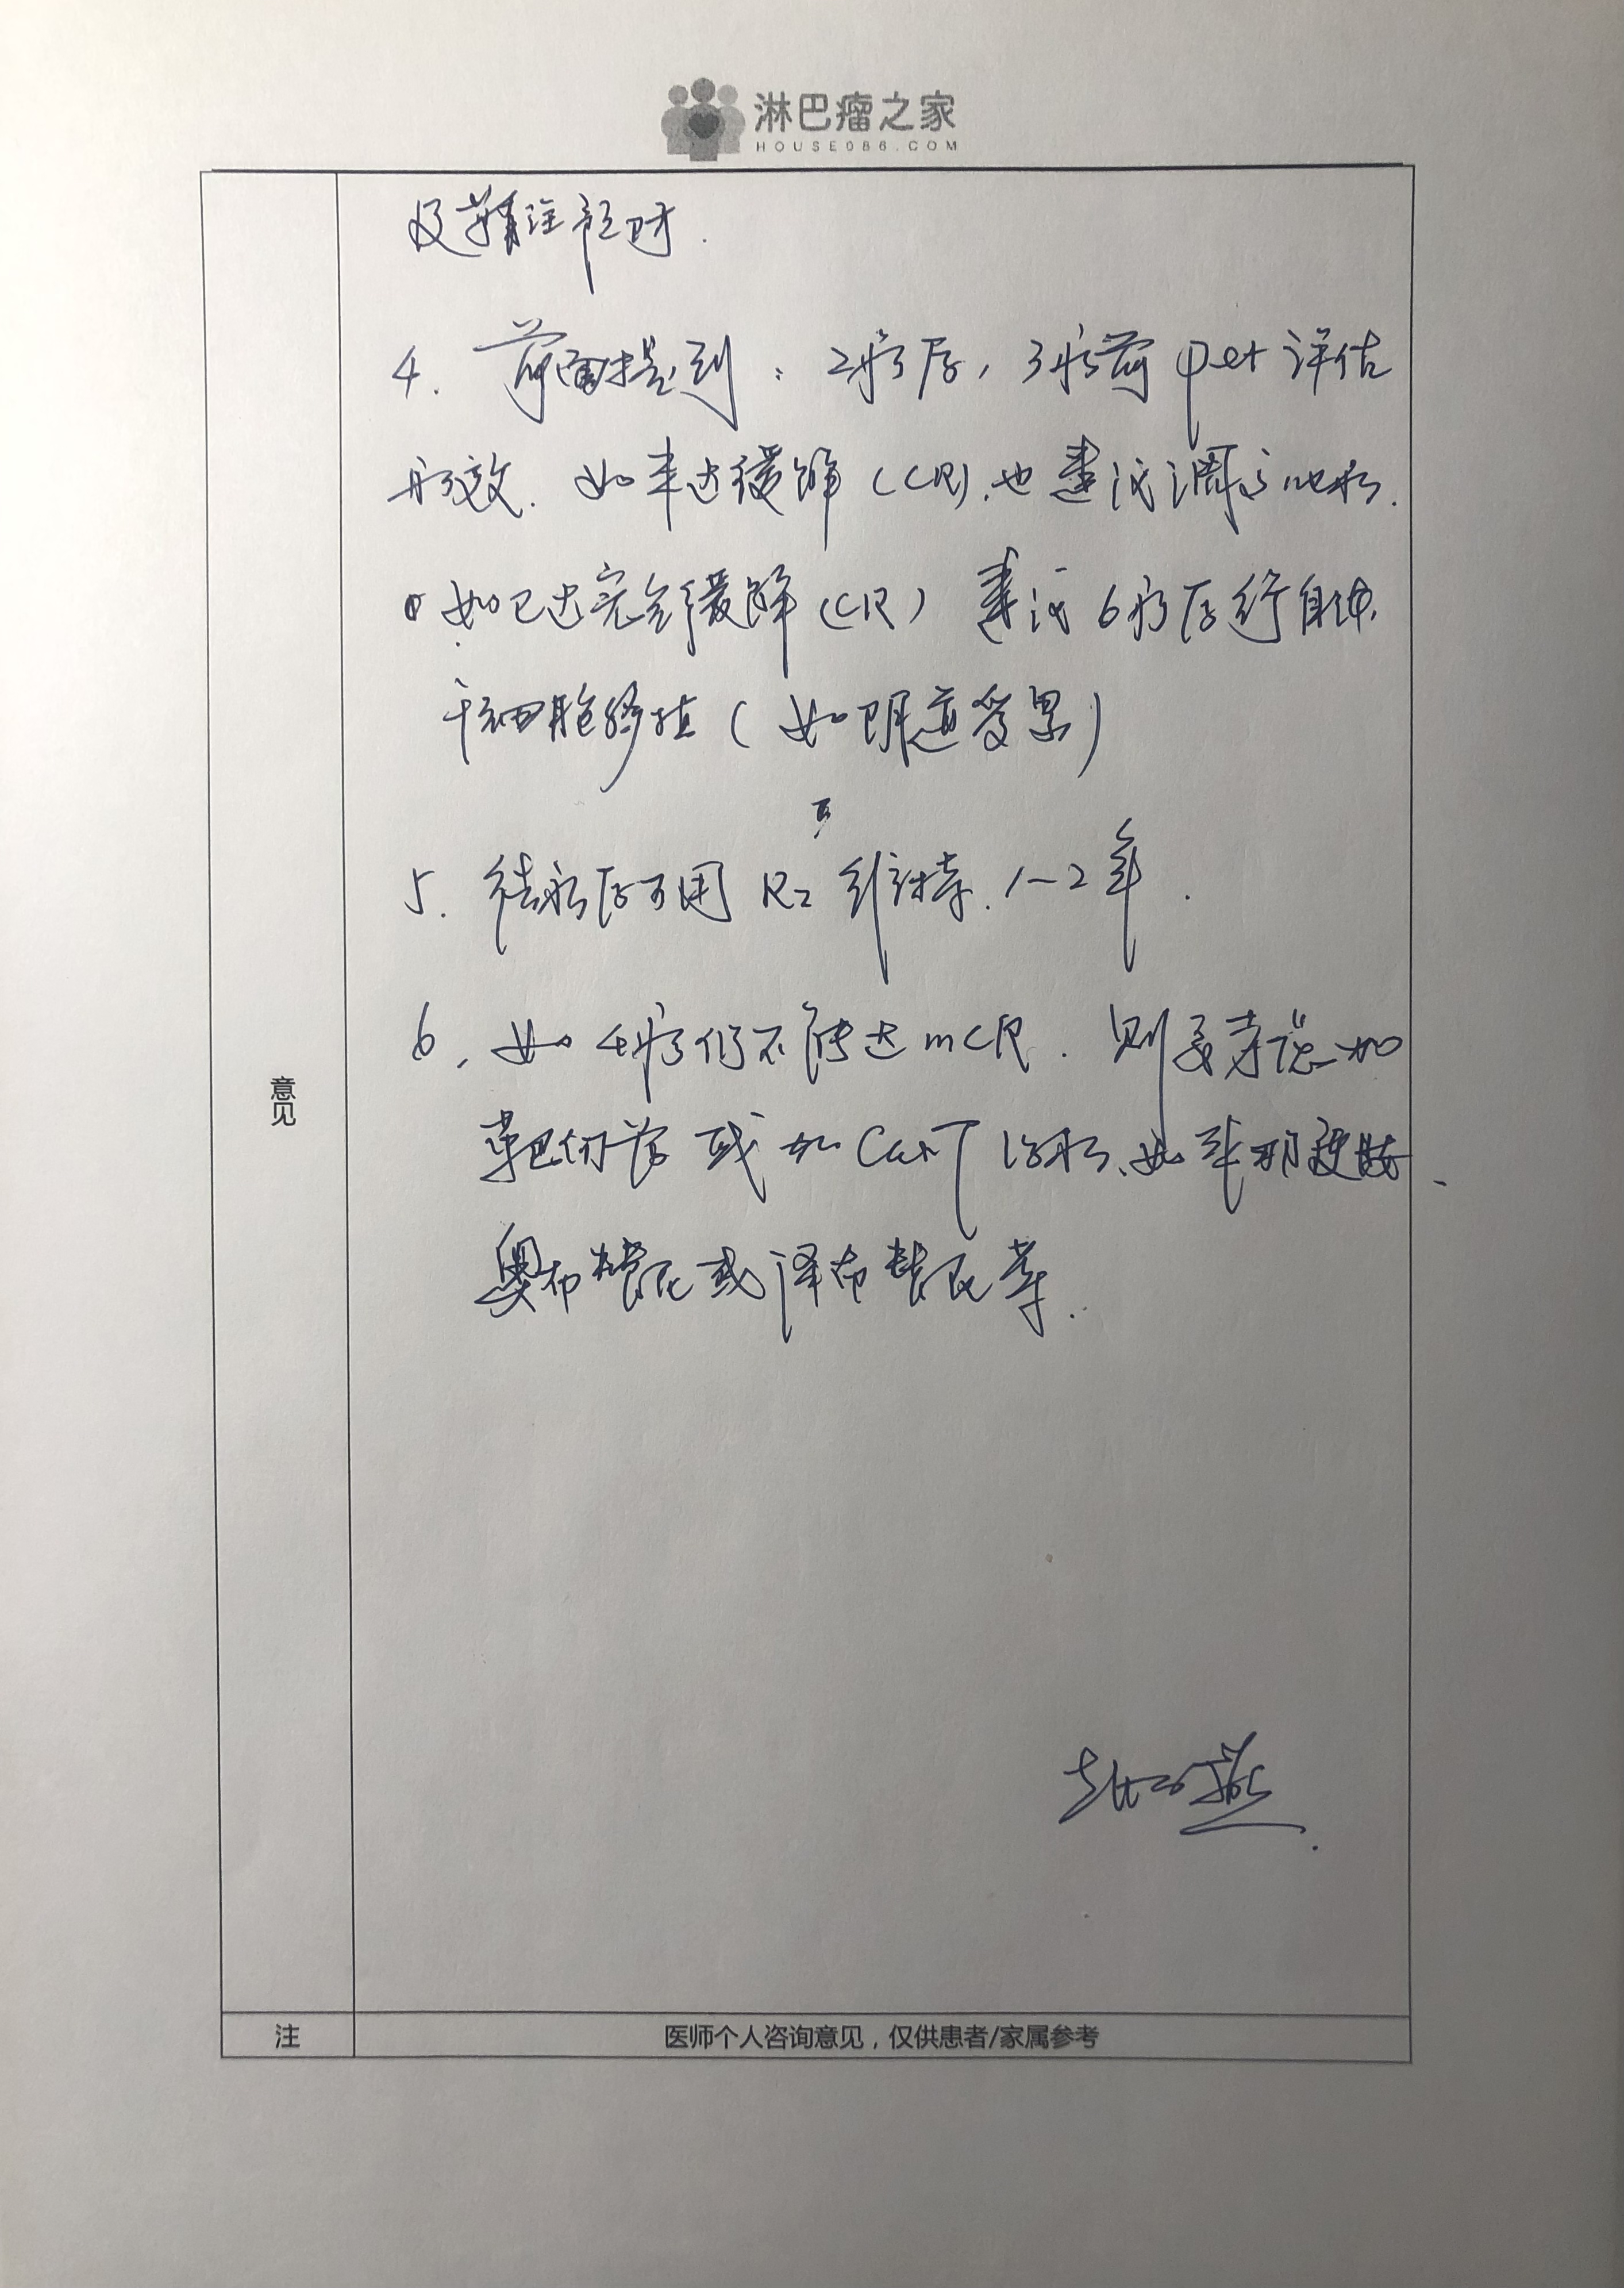 淋巴瘤之家
HOUSE086.COM
及鞘注预防.
4. 前面提到：2疗后，3疗前 pet 评估
疗效. 如未达缓解 (CR), 也建议调方化疗.
如已达完全缓解 (CR) 建议 6疗后行自体
干细胞移植 (如 受累)
5. 结疗后可用 R2 维持. 1-2年.
6. 如 4疗仍不能达 mCR. 则要考虑加
靶向药 或 加 CarT 治疗、如 来那度胺、
奥布替尼或泽布替尼等.
意见
注
医师个人咨询意见，仅供患者/家属参考